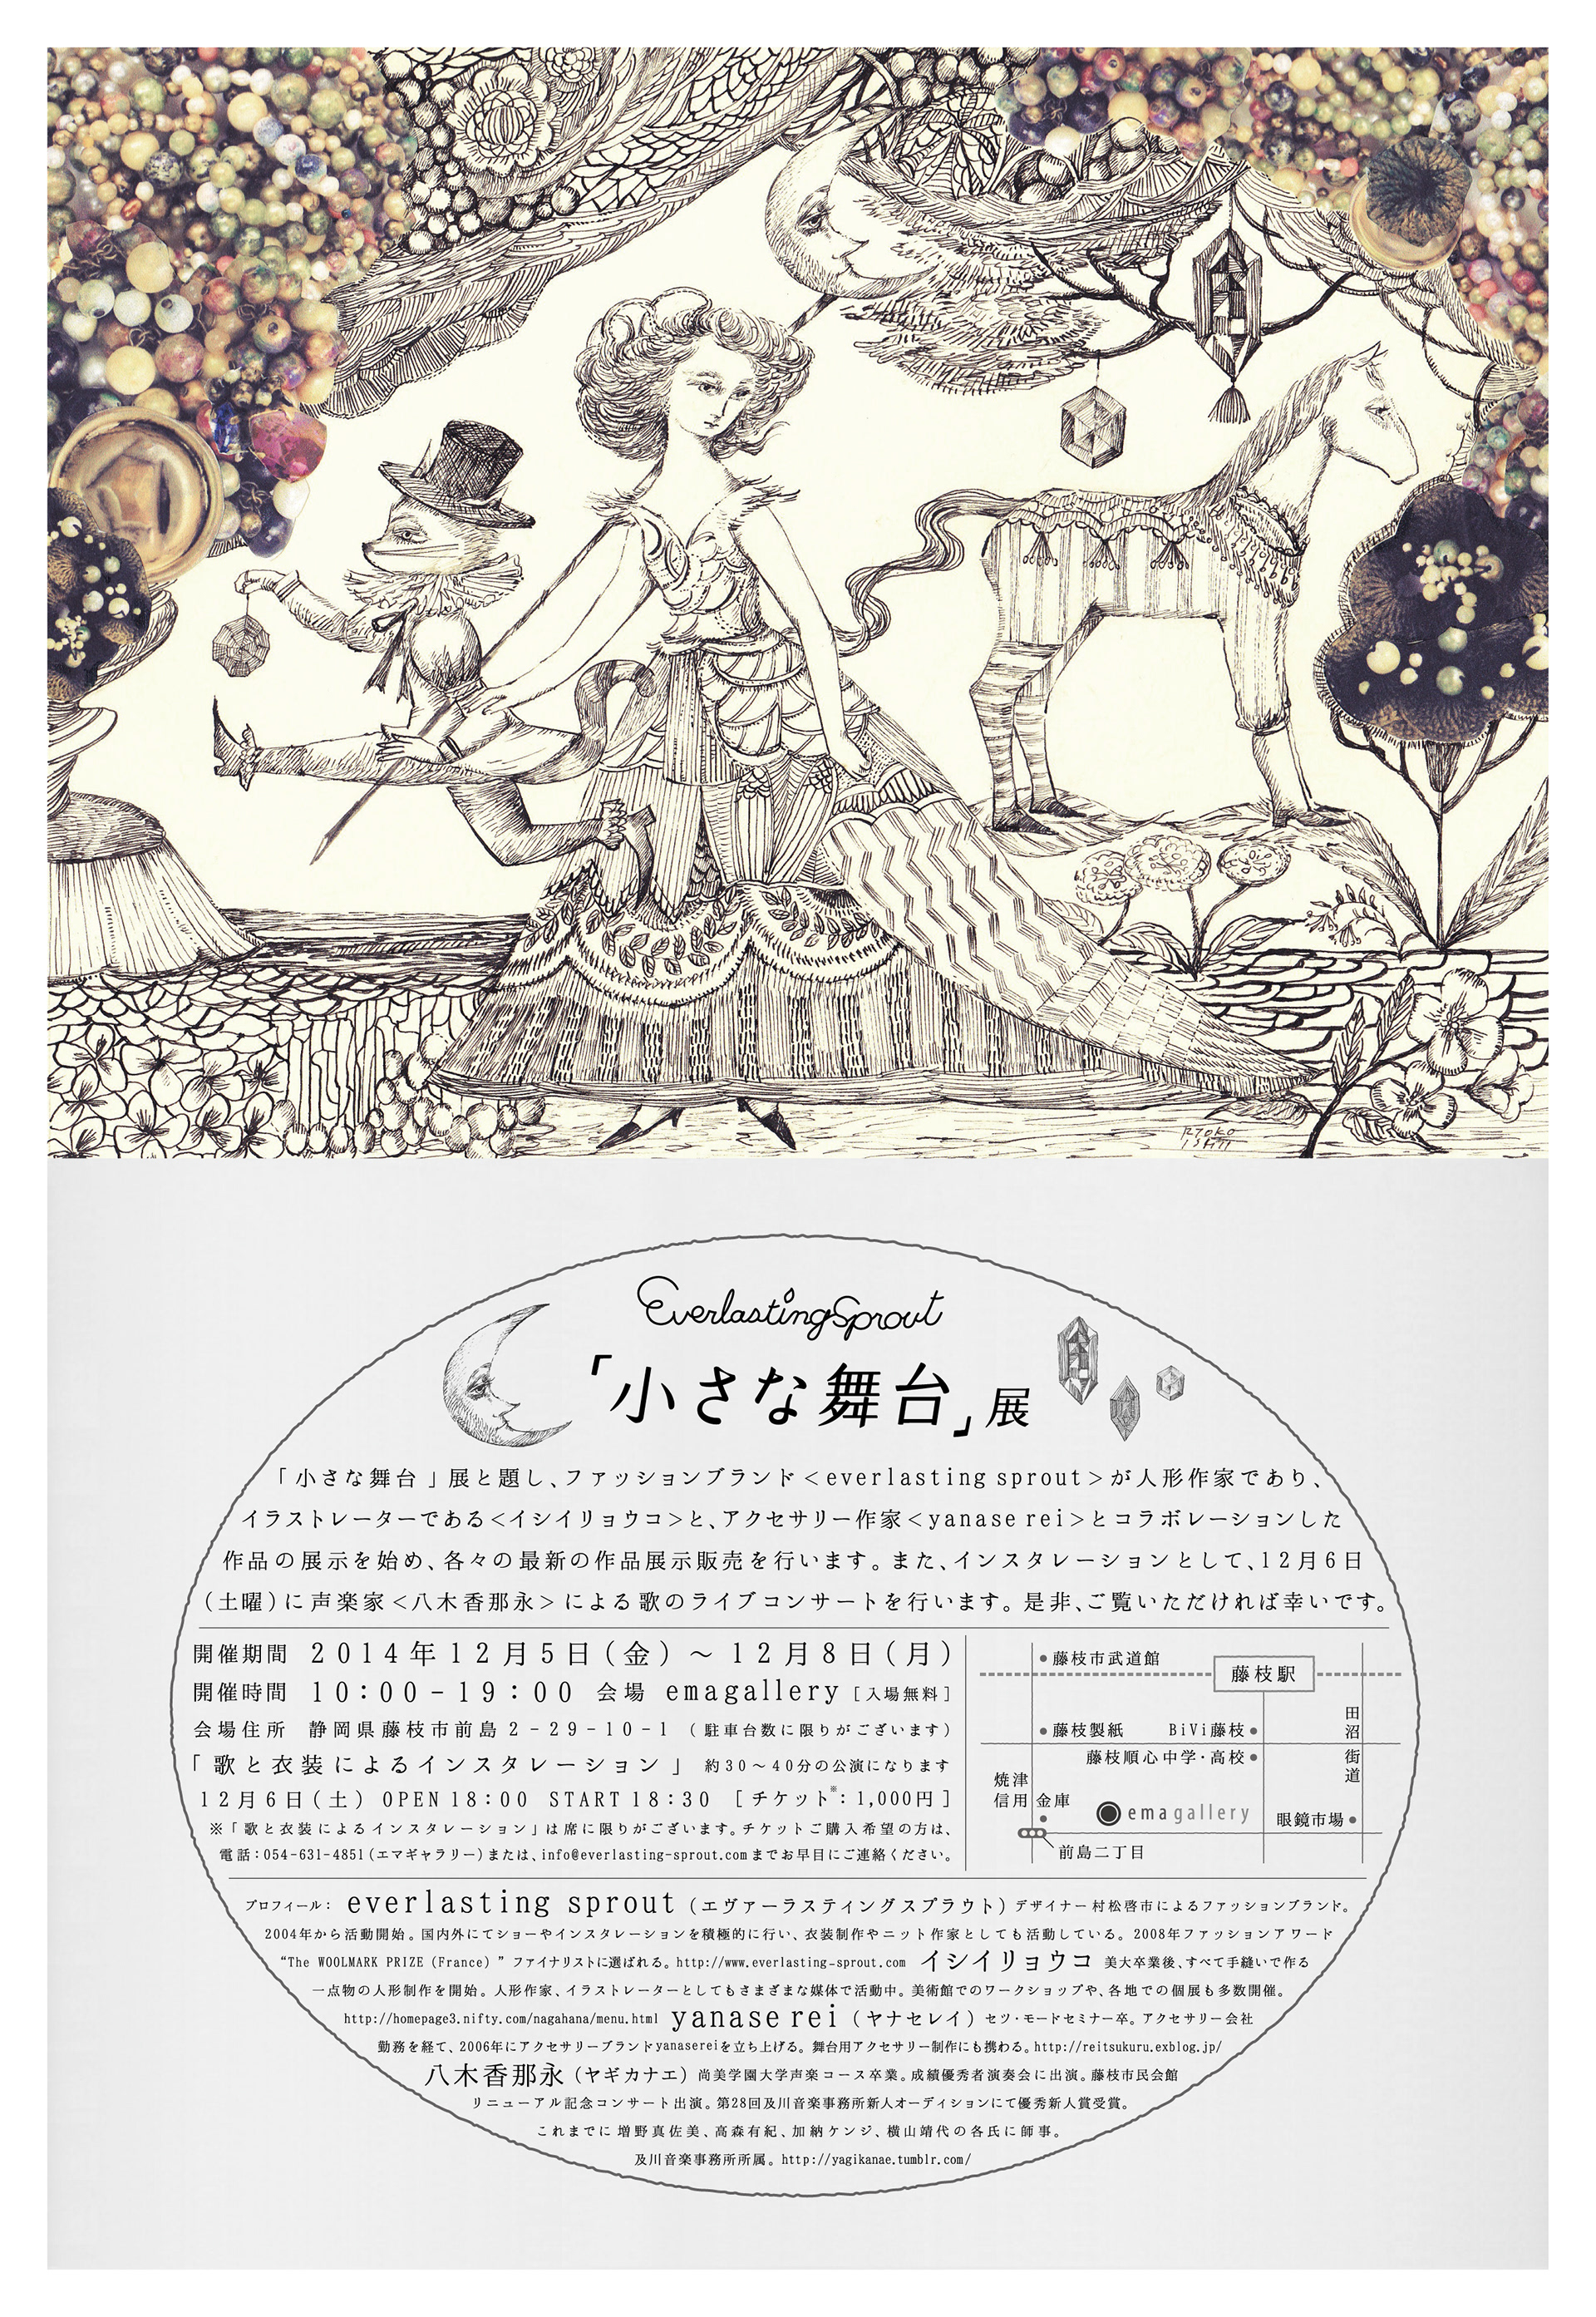 RYOKO
ISHII
everlasting sprout
「小さな舞台」展
「小さな舞台」展と題し、ファッションブランド＜everlasting sprout＞が人形作家であり、
イラストレーターである＜イシイリョウコ＞と、アクセサリー作家＜yanase rei＞とコラボレーションした
作品の展示を始め、各々の最新の作品展示販売を行います。また、インスタレーションとして、12月6日
（土曜）に声楽家＜八木香那永＞による歌のライブコンサートを行います。是非、ご覧いただければ幸いです。
開催期間 2014年12月5日（金）～12月8日（月）
開催時間 10：00－19：00 会場 emagallery［入場無料］
会場住所 静岡県藤枝市前島2－29－10－1（駐車台数に限りがございます）
「歌と衣装によるインスタレーション」 約30～40分の公演になります
12月6日（土） OPEN 18：00 START 18：30 ［チケット※：1,000円］
※「歌と衣装によるインスタレーション」は席に限りがございます。チケットご購入希望の方は、
電話：054-631-4851（エマギャラリー）または、info@everlasting-sprout.comまでお早目にご連絡ください。
藤枝市武道館
藤枝駅
藤枝製紙
BiVi藤枝
田沼街道
藤枝順心中学・高校
焼津
信用金庫
emagallery
眼鏡市場
前島二丁目
プロフィール： everlasting sprout（エヴァーラスティングスプラウト）デザイナー村松啓市によるファッションブランド。
2004年から活動開始。国内外にてショーやインスタレーションを積極的に行い、衣装制作やニット作家としても活動している。2008年ファッションアワード
“The WOOLMARK PRIZE (France) ”ファイナリストに選ばれる。http://www.everlasting-sprout.com イシイリョウコ 美大卒業後、すべて手縫いで作る
一点物の人形制作を開始。人形作家、イラストレーターとしてもさまざまな媒体で活動中。美術館でのワークショップや、各地での個展も多数開催。
http://homepage3.nifty.com/nagahana/menu.html yanase rei（ヤナセレイ）セツ・モードセミナー卒。アクセサリー会社
勤務を経て、2006年にアクセサリーブランドyanasereiを立ち上げる。舞台用アクセサリー制作にも携わる。http://reitsukuru.exblog.jp/
八木香那永（ヤギカナエ）尚美学園大学声楽コース卒業。成績優秀者演奏会に出演。藤枝市民会館
リニューアル記念コンサート出演。第28回及川音楽事務所新人オーディションにて優秀新人賞受賞。
これまでに増野真佐美、高森有紀、加納ケンジ、横山靖代の各氏に師事。
及川音楽事務所所属。http://yagikanae.tumblr.com/